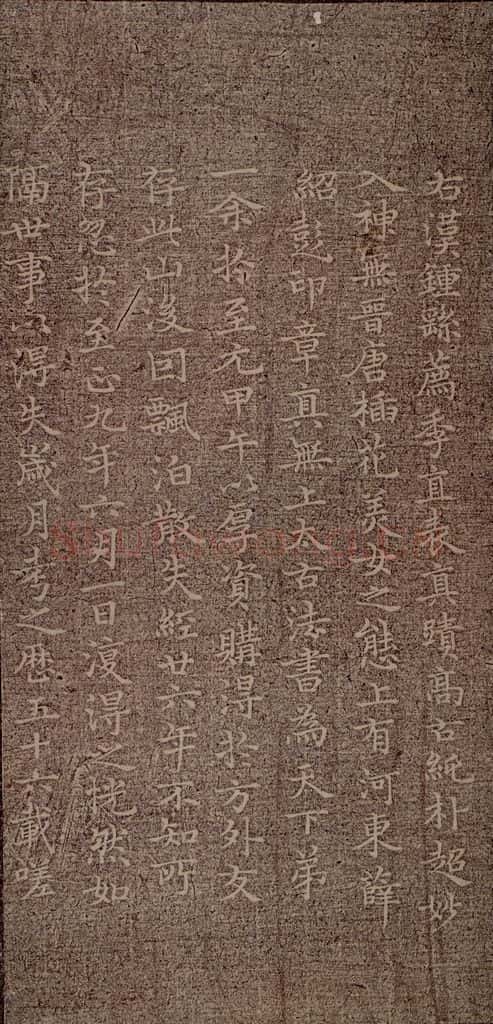 右漢鍾繇薦季直表真蹟高古純朴超妙
入神無晉唐插花美女之態上有河東薛
紹彭印章真無上太古法書為天下弟
一余於至元甲午以厚資購得於方外友
存此山沒因飄泊散失經廿六年不知所
存忽於至正九年六月一日復得之恍然如
隔世事以得失歲月考之歷五十六載嗟